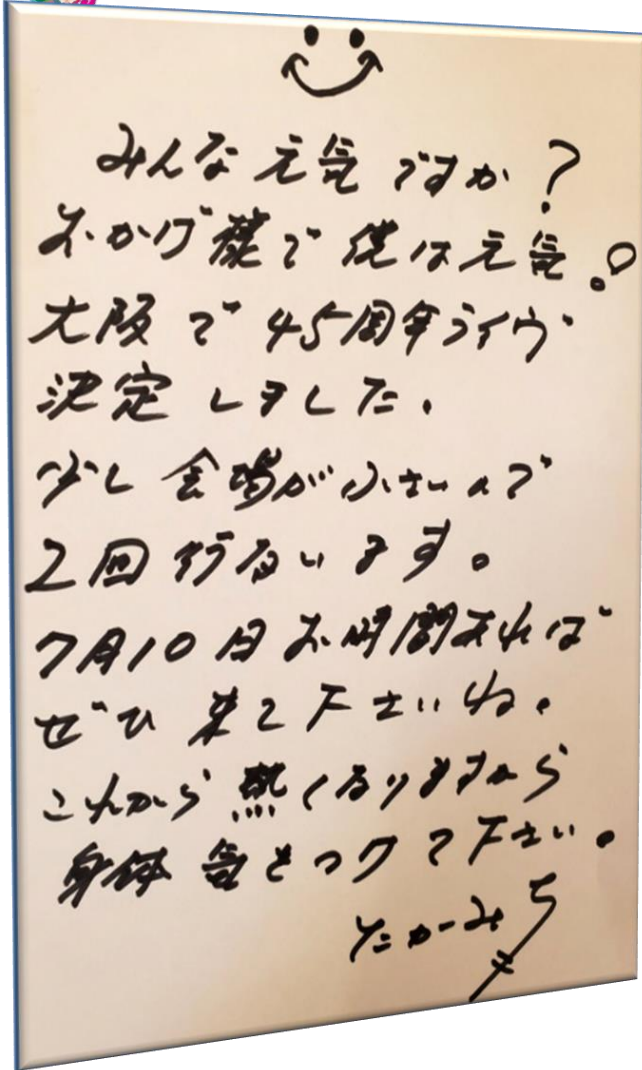 みんな元気ですか?
おかげ様で僕は元気!
大阪で45周年ライヴ
決定しました。
少し会場が小さいので
2回行ないます。
7月10日お時間あれば
ぜひ来て下さいね。
これから熱くなりますから
身体気をつけて下さい。
たかみち